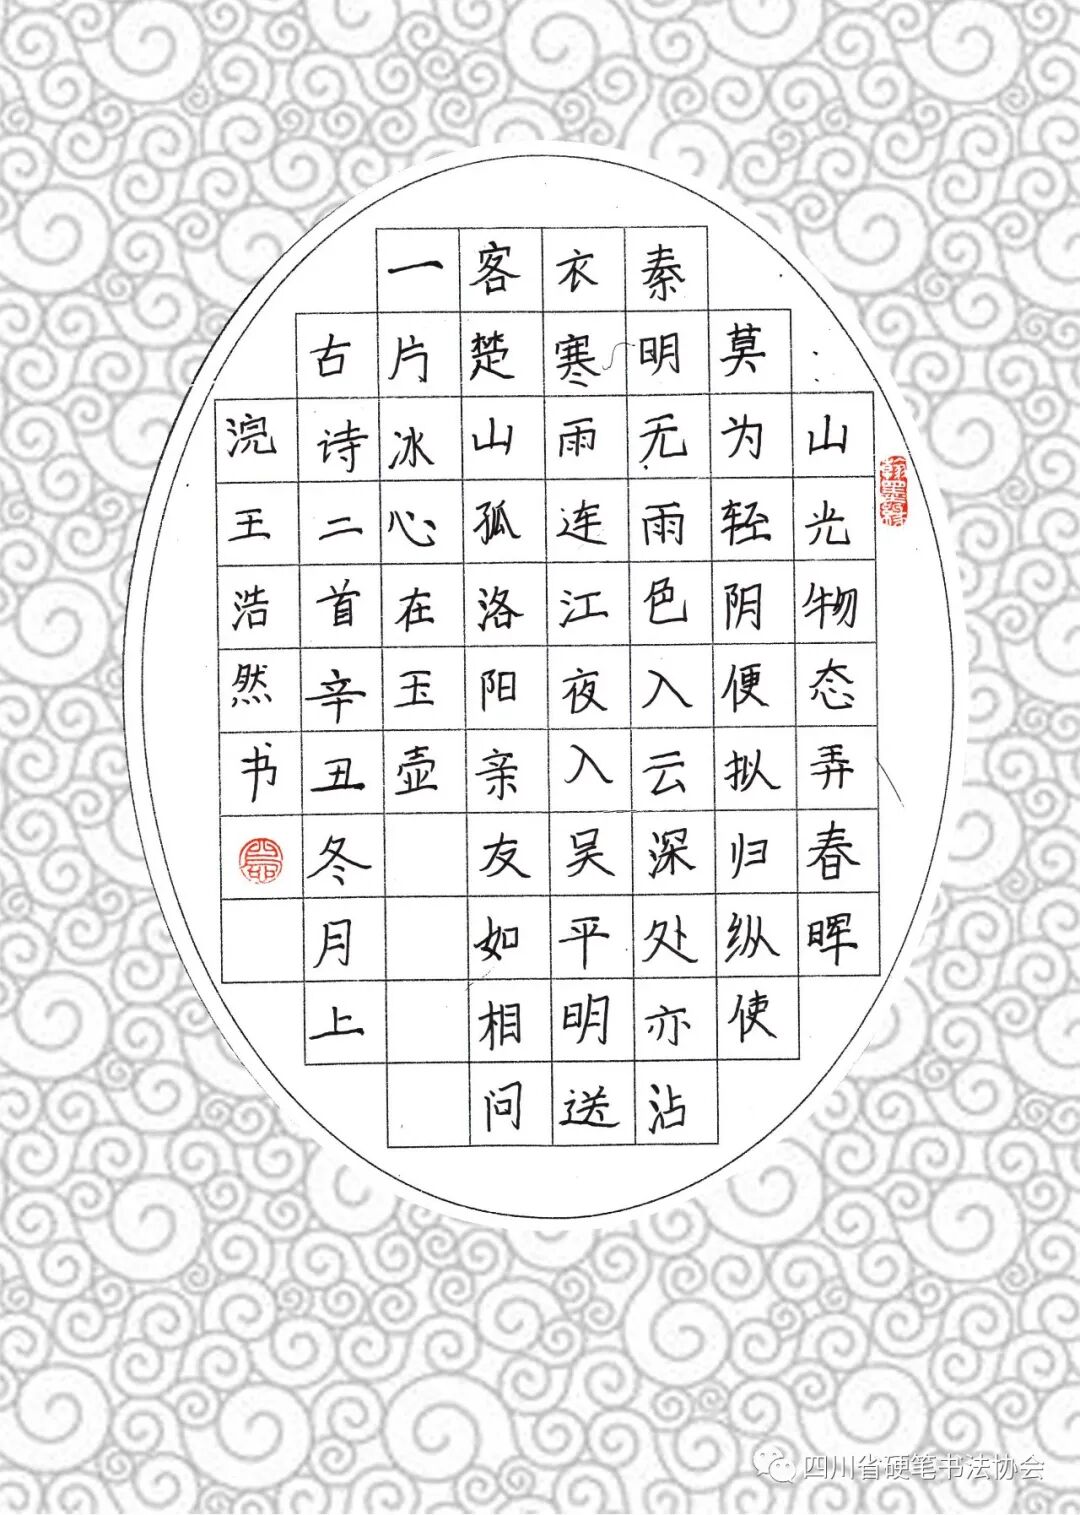 翰墨缘
山光物态弄春晖
莫为轻阴便拟归纵使
秦明无雨色入云深处亦沾
衣寒雨连江夜入吴平明送
客楚山孤洛阳亲友如相问
一片冰心在玉壶
古诗二首辛丑冬月上
浣王浩然书
四川省硬笔书法协会